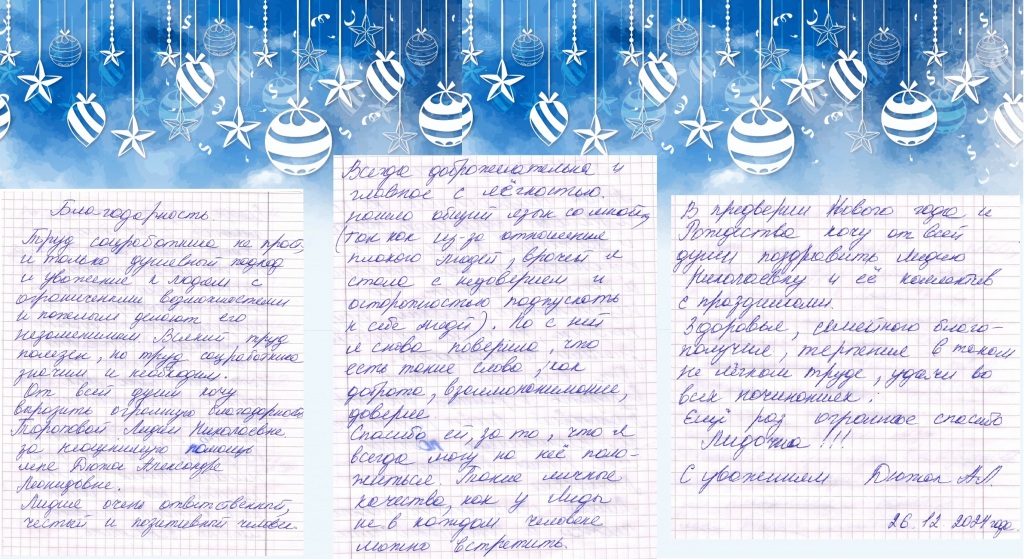 Благодарность.
Труд соцработника не прост,
и только душевный подход
и уважение к людям с
ограниченными возможностями
и пожилым делают его
незаменимым. Всякий труд
полезен, но труд соцработника
значим и необходим.
От всей души хочу
выразить огромную благодарность
Тороповой Лидии Николаевне
за неоценимую помощь
мне Дюжок Александре
Леонидовне.
Лидия очень ответственный,
честный и позитивный человек.
Всегда доброжелательна и
главное с лёгкостью.
нашла общий язык со мной,
(так как из-за отношения
плохого людей, врачей я
стала с недоверием и
осторожностью подпускать
к себе людей). Но с ней
я снова поверила, что
есть такие слова, как
доброта, взаимопонимание,
доверие.
Спасибо ей, за то, что я
всегда могу на неё поло-
житься. Такие личные
качества, как у Лиды
не в каждом человеке
можно встретить.
В предверии Нового года и
Рождества хочу от всей
души поздравить Лидию
Николаевну и её коллектив
с праздниками.
Здоровья, семейного благо-
получия, терпения в таком
не лёгком труде, удачи во
всех начинаниях.
Ещё раз огромное спасибо
Лидочка!!!
С уважением А.Л.
26.12.2024 года.